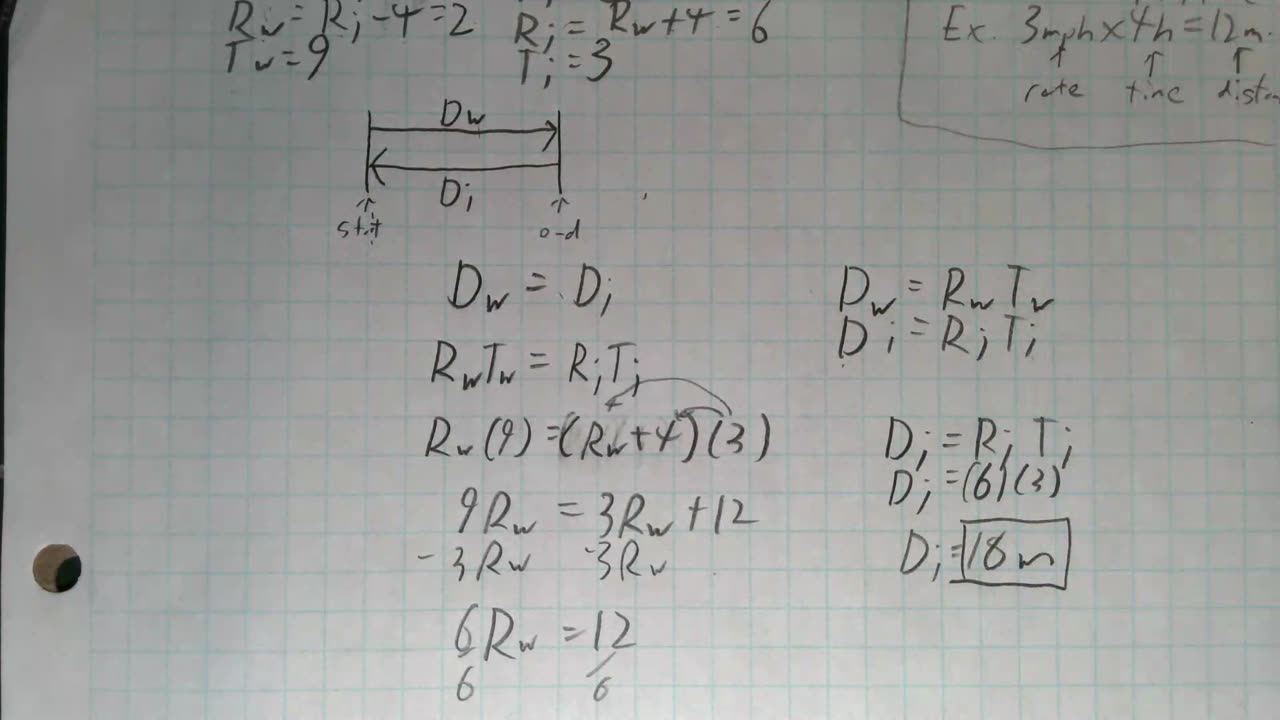 Rw = Rj - 4 = 2
Tw = 9
Rj = Rw + 4 = 6
Tj = 3
Ex. 3mph x 4h = 12m.
rate time distan
Dw
Dj
start
Dw = Dj
RwTw = RjTj
Rw(9) = (Rw+4)(3)
9Rw = 3Rw + 12
-3Rw -3Rw
6Rw = 12
6 6
Dw = Rw Tw
Dj = Rj Tj
Dj = Rj Tj
Dj = (6)(3)
Dj = 18m